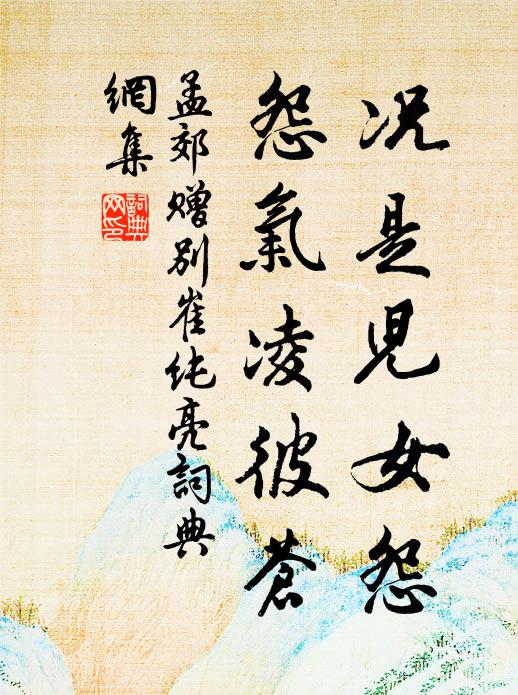 况是兒女怨
怨氣凌彼蒼
孟郊贈别崔純亮詞典
網集
詞典
网印